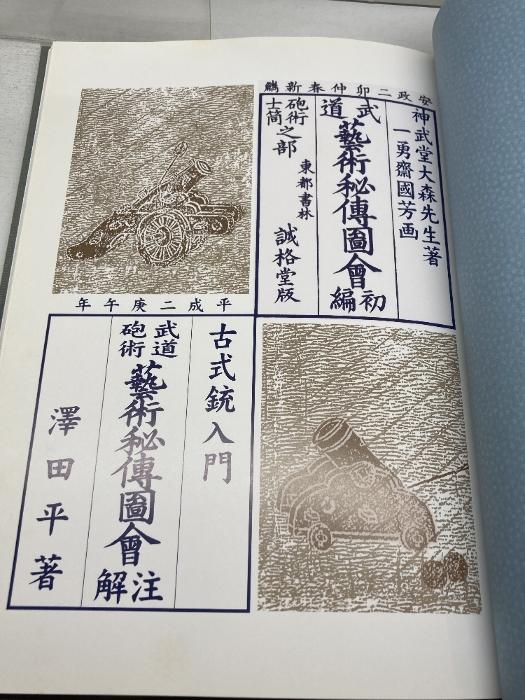 安政二卯仲春新
神武堂大森先生著
一勇齋國芳画
武道
藝術秘傳圖會
初編
砲術
士筒
之部
東都書林
誠格堂版
平成二庚午年
古式銃入門
武道
砲術
藝術秘傳圖會
注解
澤田平著